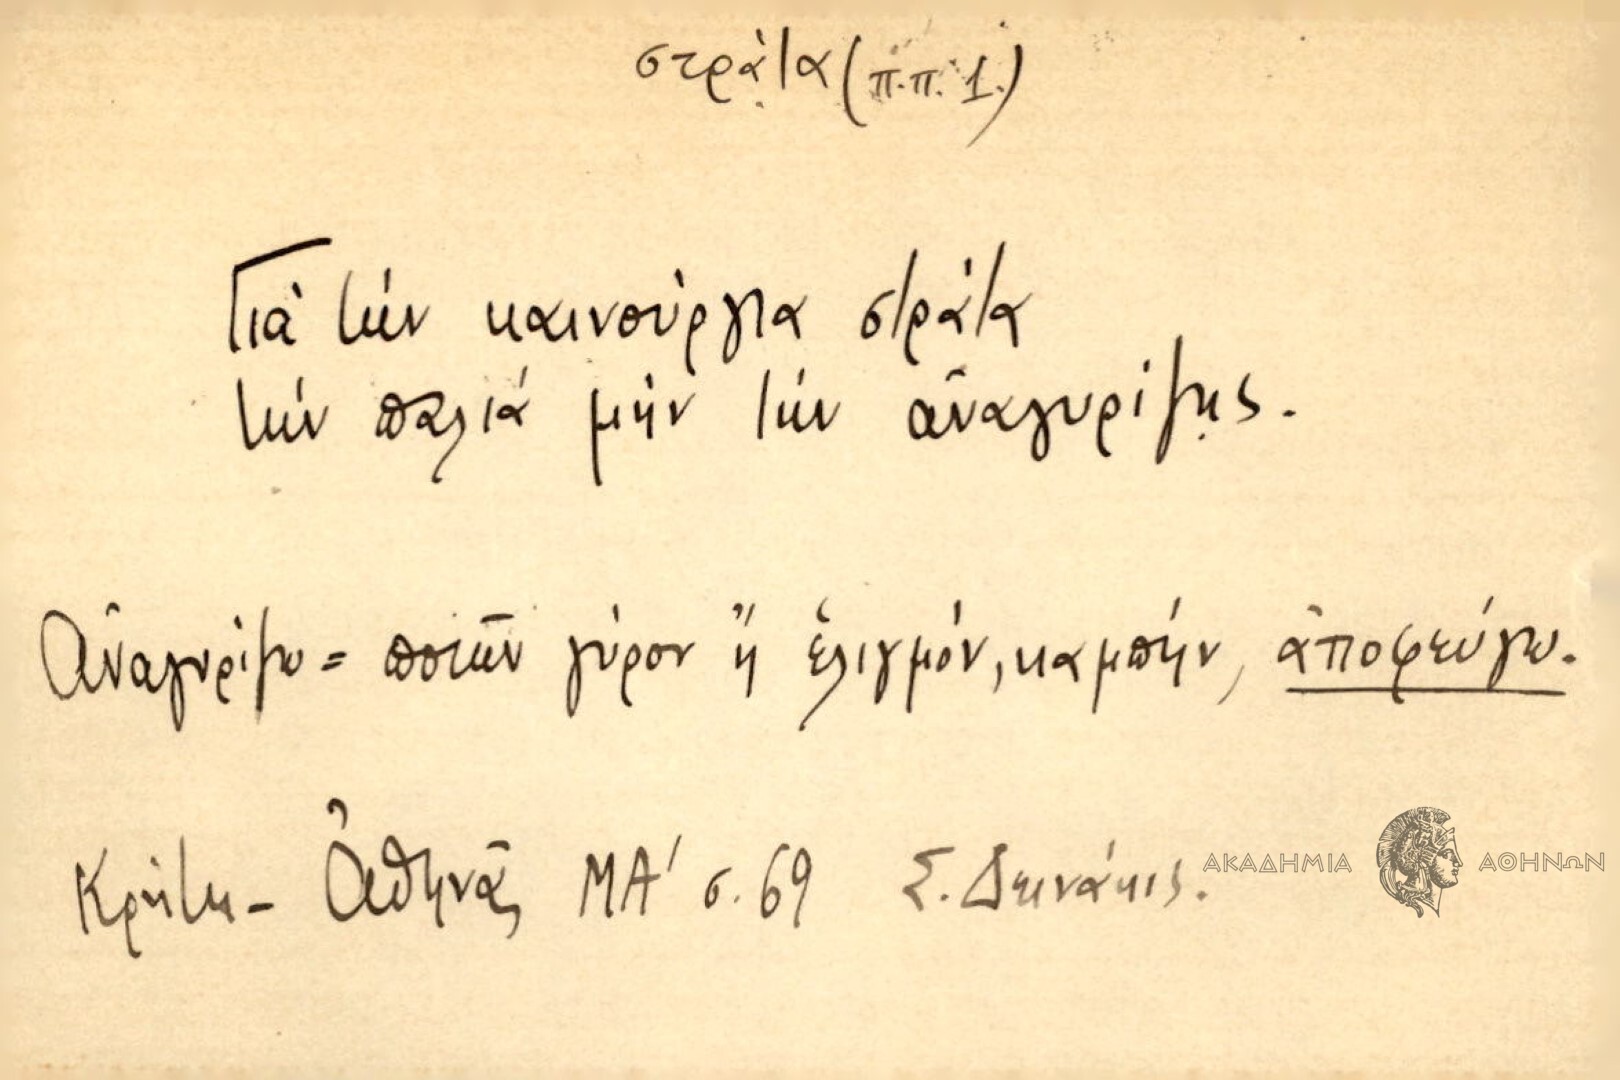 στράτα (π.π. 1.)
Γιὰ τὴν καινούργια στράτα
τὴν παλιά μὴν τὴν ἀναγυρίζῃς.
Ἀναγυρίζω = ποιῶν γύρον ἤ ἑλιγμόν, καμπὴν, ἀποφεύγω.
Κρήτη - Ἀθηνᾶ ΜΑ' σ. 69 Σ. Δεινάκις.
ΑΚΑΔΗΜΙΑ ΑΘΗΝΩΝ